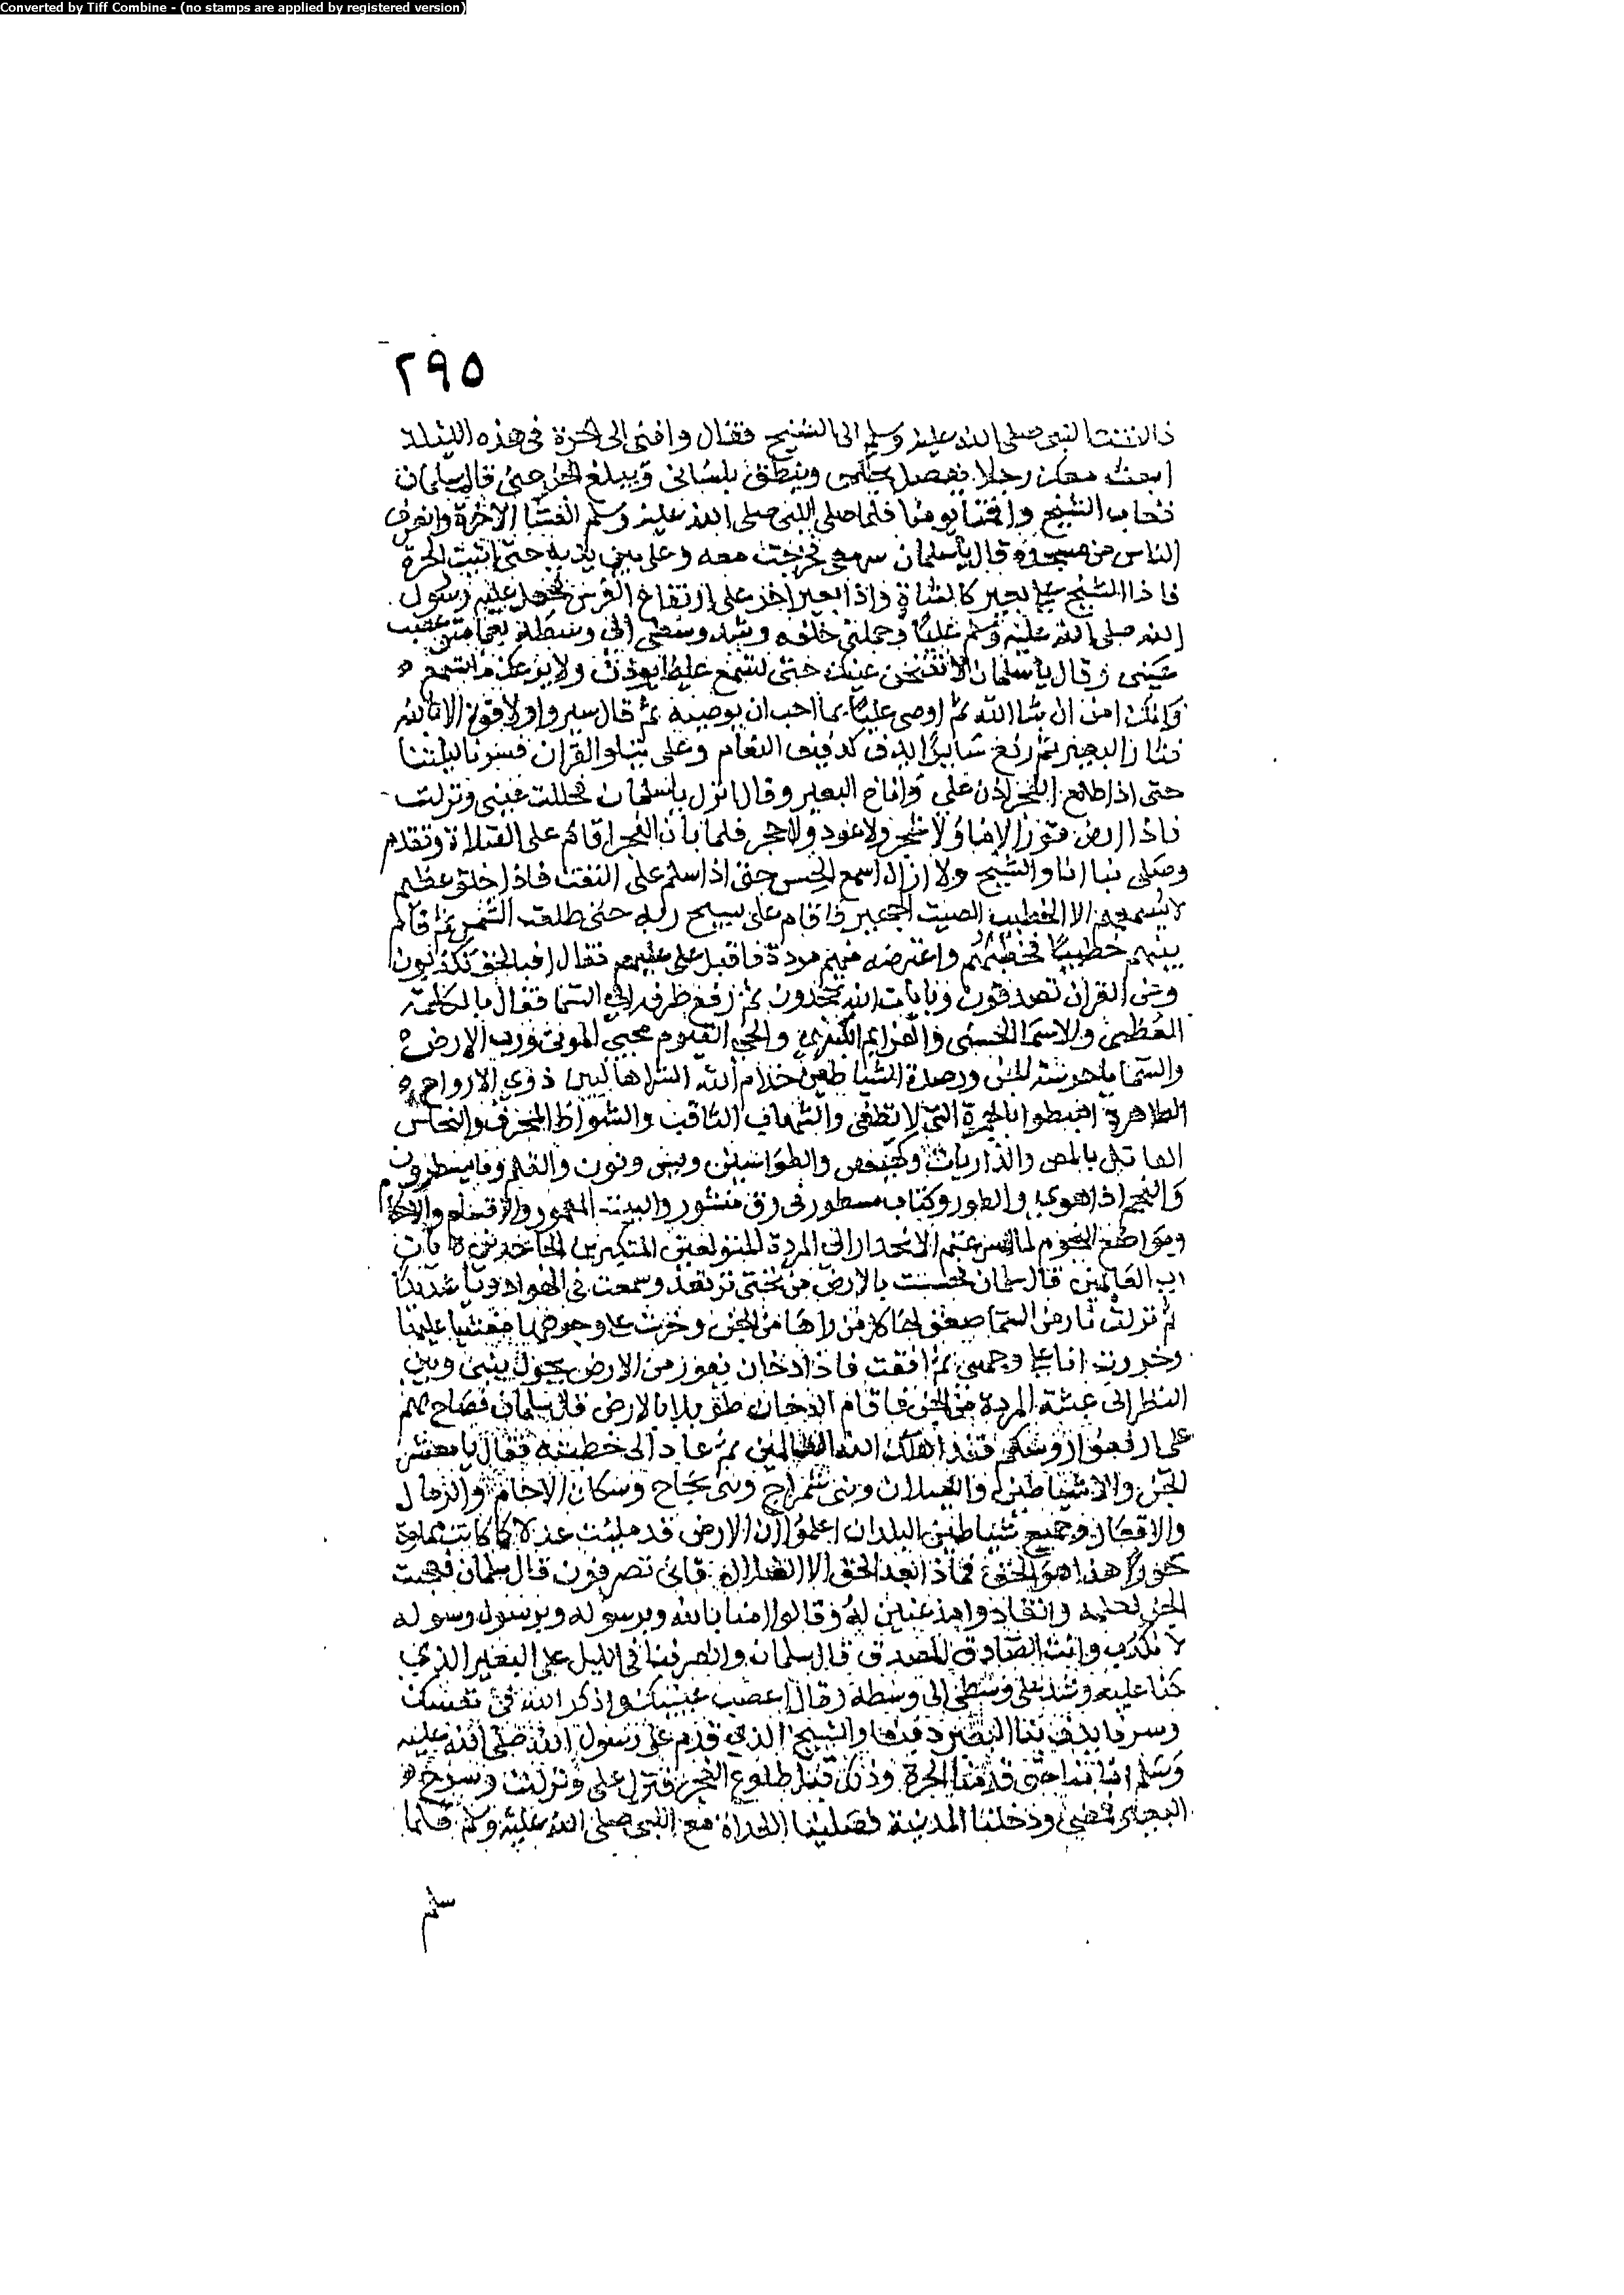 Converted by Tiff Combine - (no stamps are applied by registered version)
٢٩٥
فالتفت النبي صلى الله عليه وسلم الى الشيخ فقال وافني الى الحرة في هذه الليلة
ابعث معك رجلا يفصل بحكمي وينطق بلساني ويبلغ الجن عني قال سلمان
فغاب الشيخ واقمنا يومنا فلما صلى النبي صلى الله عليه وسلم العشا الاخرة وانصرف
الناس من مسجده قال يا سلمان سر معي فخرجت معه وعلي بين يديه حتى اتيت الحرة
فاذا الشيخ على بعير كالشاة واذا بعير اخر على ارتفاع الفرس فحمل عليه رسول
الله صلى الله عليه وسلم عليا وحملني خلفه وشد وسطي الى وسطه بعمامتي وعصب
عيني وقال يا سلمان لا تفتحن عينك حتى تسمع عليا يوذن ولا يروعك ما تسمع
وانك امن ان شا الله ثم اوصى عليا بما احب ان يوصيه ثم قال سيروا ولا قوة الا بالله
فثار البعير ثم رفع سايرا يدف كدفيف النعام وعلي يتلو القران فسرنا ليلتنا
حتى اذا طلع الفجر اذن علي واناخ البعير وقال انزل يا سلمان فحللت عيني ونزلت
فاذا ارض قورا لا ما ولا شجر ولا عود ولا حجر فلما بان الفجر اقام علي الصلاة وتقدم
وصلى بنا انا والشيخ ولا ازال اسمع الحس حتى اذا سلم علي التفت فاذا خلق عظيم
لا يسمعهم الا الخطيب الصيت الجهير فاقام علي يسبح ربه حتى طلعت الشمس ثم قام
بينهم خطيبا فخطبهم واعترضه منهم مردة فاقبل علي عليهم فقال افبالحق تكذبون
وعن القران تصدفون وبايات الله تجحدون ثم رفع طرفه الى السما فقال بالكلمة
العظمى والاسما الحسنى والعزايم الكبرى والحي القيوم محيي الموتى ورب الارض
والسما يا حرسة الجن ورصدة الشياطين خدام الله الشراهاليين ذوي الارواح
الطاهرة اهبطوا بالجمرة التي لا تطفى والشهاب الثاقب والشواظ المحرق والنحاس
القاتل بالمص والذاريات وكهيعص والطواسين ويس ونون والقلم وما يسطرون
والنجم اذا هوى والطور وكتاب مسطور في رق منشور والبيت المعمور والاقسام والاحكام
ومواقع النجوم لما اسرعتم الانحدار الى المردة المتولعين المتكبرين الجاحدين ايات
رب العالمين قال سلمان فحسست بالارض من تحتي ترتعد وسمعت في الهوا دويا شديدا
ثم نزلت نار من السما صعق لها كل من راها من الجن وخرت على وجوهها مغشيا عليها
وخررت انا على وجهي ثم افقت فاذا دخان يفور من الارض يحول بيني وبين
النظر الى عبثة المردة من الجن فاقام الدخان طويلا بالارض قال سلمان فصاح بهم
علي ارفعوا روسكم فقد اهلك الله الظالمين ثم عاد الى خطبته فقال يا معشر
الجن والشياطين والغيلان وبني شمراخ وبني نجاح وسكان الاجام والرمال
والاقفار وجميع شياطين البلدان اعلموا ان الارض قد ملئت عدلا كما كانت مملوة
جورا هذا هو الحق فماذا بعد الحق الا الضلال فاني تصرفون قال سلمان فعجبت
الجن لعلمه وانقادوا مذعنين له وقالوا امنا بالله وبرسوله وبرسول رسوله
لا نكذب وانت الصادق المصدق قال سلمان وانصرفنا في الليل على البعير الذي
كنا عليه وشد علي وسطي الى وسطه وقال اعصب عينيك واذكر الله في نفسك
وسرنا يدف بنا البعير دفيفا والشيخ الذي قدم على رسول الله صلى الله عليه
وسلم امامنا حتى قدمنا الحرة وذلك قبل طلوع الفجر فنزل علي ونزلت وسرح
البعير فمضى ودخلنا المدينة فصلينا الغداة مع النبي صلى الله عليه وسلم فلما
سلم